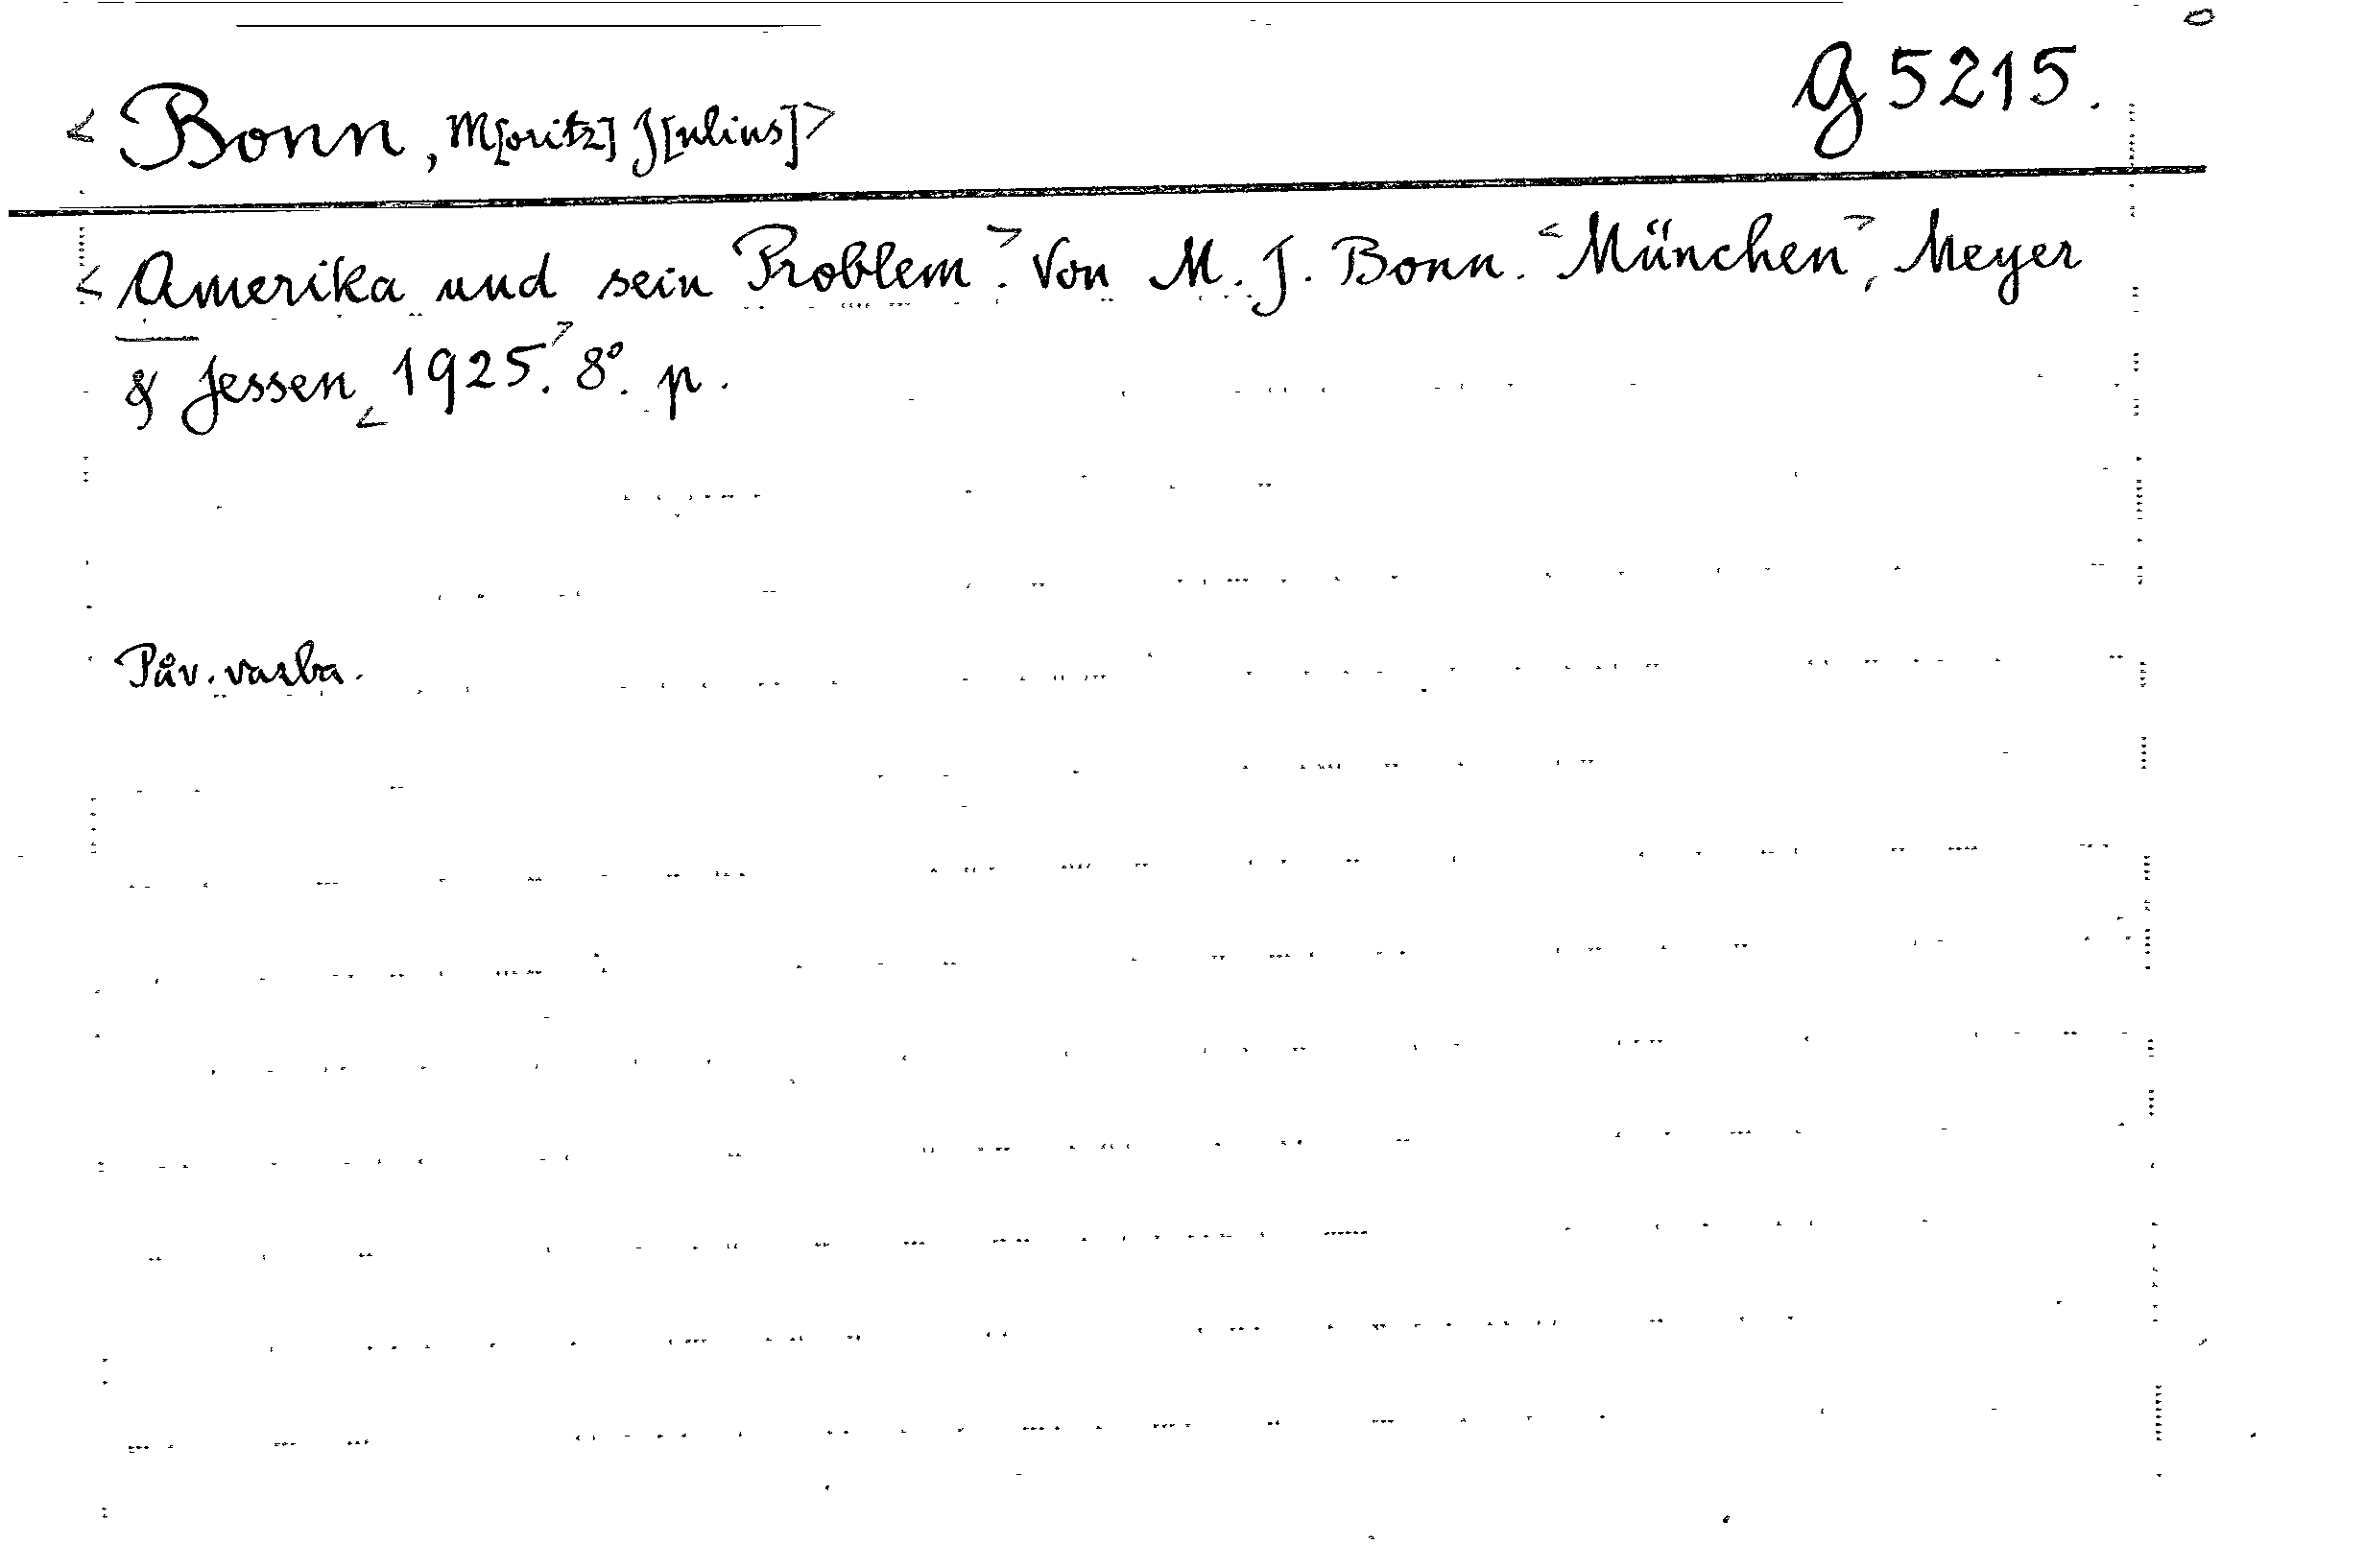 < Bonn, M[oritz] J[ulius] >
G 5215.
< Amerika und sein Problem. > Von M. J. Bonn. < München >, Meyer
& Jessen, < 1925. > 8°. p.
Pův. vazba.